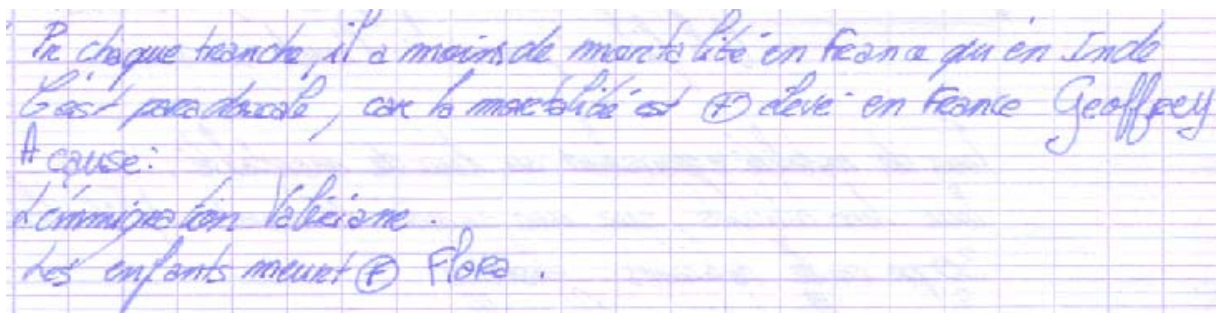 Pr chaque tranche, il a moins de mortalité en France qu'en Inde
C'est paradoxale, car la mortalité est ⊕ élevé en France Geoffrey
A cause:
L'immigration Valériane.
Les enfants meurt ⊕ Flora.